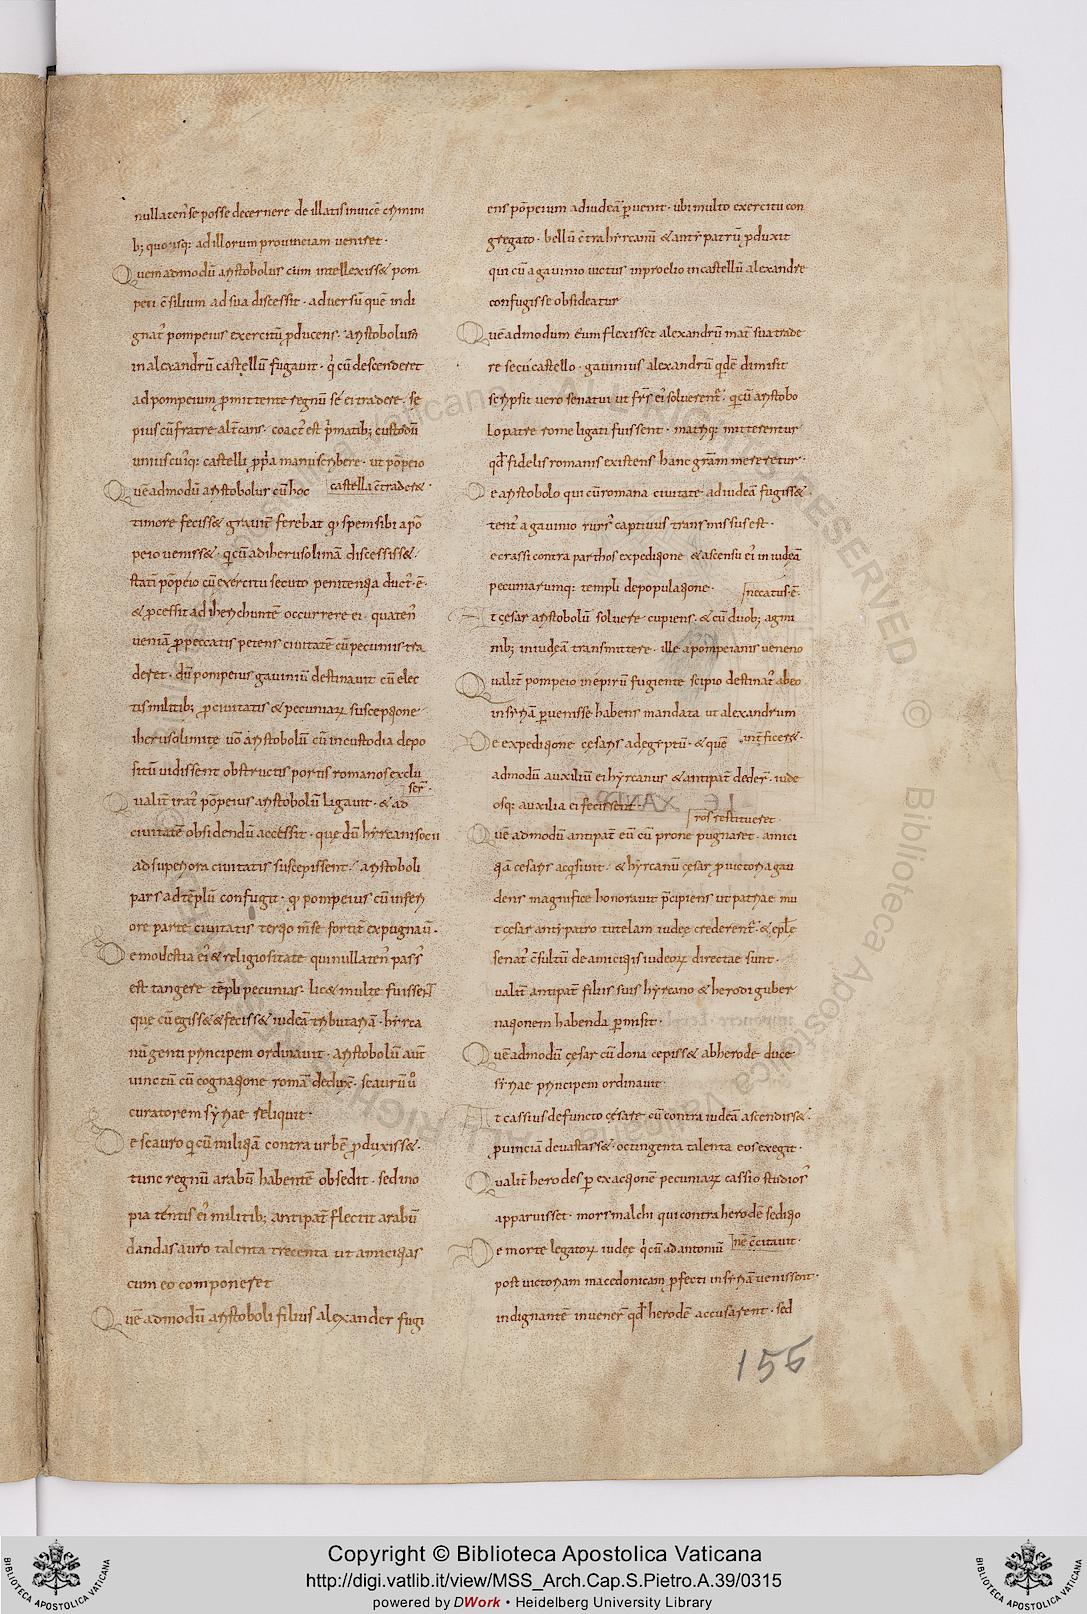 nullaten̄ se posse decernere de illatis invicē crimini
b; quousq; ad illorum provinciam veniret·
Quem admodū aristobolus cum intellexisset pom
peii c̄silium ad sua discessit· adversū quē indi
gnat᾽ pompeius exercitū ꝓducens· aristobolum
in alexandrū castellū fugavit· q̇ cū descenderet
ad pompeium ꝓmittente regnū sé ei tradere· se
pius cū fratre alt̄cans· coact᾽ est p̄matib; custodū
uniuscuiq; castelli ꝓp̄a manu scribere· ut pōpeio
castella c̄traderet·
Quē admodū aristobolus cū hoc
timore fecisset gravit̄ ferebat ꝙ spem sibi a pō
peio venisset· q̇ cū ad iherusolimā discessisset·
statī pōpeio cū exercitu secuto penitentia duct᾽ ē·
& ꝓcessit ad iherichuntē occurrere ei· quaten̄
veniā ꝓ peccatis petens civitatē cū pecuniis tra
deret· dū pompeius gaviniū destinavit cū elec
tis militib; ꝓ civitatis & pecuniarꝝ susceptione
iherusolimite vō aristobolū cū in custodia depo
sitū vidissent obstructis portis romanos exclu
ser̄·
Qualit̄ irat᾽ pōpeius aristobolū ligavit· & ad
civitatē obsidendū accessit· quę dū hyrcani socii
ad superiora civitatis suscepissent· aristoboli
pars ad tēplū confugit· ꝙ pompeius cū inferi
ore parte civitatis tertio m̄se fortit̄ expugnavit̄·
De modestia ei᾽ & religiositate qui nullaten̄ pass᾽
est tangere tēpli pecunias· licet multe fuissent
que cū egisset & fecisset iudeā tributariā· hyrca
nū genti principem ordinavit· aristobolū aut̄
vinctū cū cognatione romā deduxit· scaurū v̊
curatorem syriae reliquit·
De scauro q̇ cū militiā contra urbē ꝓduxisset·
tunc regnū arabū habentē obsedit· sed ino
pia tentis ei᾽ militib; antipat̄ flectit arabū
danda sauro talenta trecenta ut amicitias
cum eo componeret
Quē admodū aristoboli filius alexander fugi
ens pōpeium ad iudeā ꝑvenit· ubi multo exercitu con
gregato· bellū c̄tra hyrcanū & antipatrū ꝓduxit
qui cū a gavinio victus in proelio in castellū alexandre
confugisse obsideatur
Quē admodum eum flexisset alexandrū mat̄ sua trade
re se cū castello· gavinius alexandrū qdē dimisit
scripsit vero senatui ut frs̄ ei᾽ solverent̄· q̇ cū aristobo
lo patre rome ligati fuissent· matriq; mitterentur
qd̄ fidelis romanis existens hanc gr̄am mereretur·
De aristobolo qui cū romana civitate ad iudeā fugisset
tent᾽ a gavinio rurs᾽ captivus transmissus est·
De crassi contra parthos expeditione & ascensu ei᾽ in iudeā
pecuniarumq; templi depopulatione·
necatus· ē·
At cesar aristobolū solvere cupiens· & cū duob; agmi
nib; in iudeā transmittere· ille a pompeianis veneno
Qualit̄ pompeio in epirū fugiente scipio destinat᾽ ab eo
in syriā ꝑvenisse habens mandata ut alexandrum
int̄ficeret·
De expeditione cęsaris ad egiptū· & quē
admodū auxiliū ei hyrcanus & antipat̄ deder̄· iude
osq; auxilia ei fecissent·
ros restitueret·
Quē admodū antipat̄ eū cū prone pugnaret· amici
tiā cesaris acq̇sivit· & hyrcanū cęsar ꝓ victoria gau
dens magnifice honoravit p̄cipiens ut patriae mu
Ut cęsar antipatro tutelam iudeę crederent̄· & eple
senat᾽ c̄sultū de amicitiis iudeorꝝ directae sunt·
Qualit̄ antipat̄ filiis suis hyrcano & herodi guber
nationem habenda ꝑmisit·
Quē admodū cęsar cū dona cepisset ab herode duce
syriae principem ordinavit·
At cassius defuncto cęsare cū contra iudeā ascendisset·
ꝓvinciā devastasset· octingenta talenta eos exegit·
Qualit̄ herodes ꝑ exactionē pecuniarꝝ cassio studios᾽
apparuisset· mors malchi qui contra herodē seditio
nē c̄citavit·
De morte legatorꝝ iudeę q̇ cū ad antoniū
post victoriam macedonicam ꝓfecti in syriā venissent·
indignantē invener̄ qd̄ herodē accusarent· sed
156
Copyright © Biblioteca Apostolica Vaticana
http://digi.vatlib.it/view/MSS_Arch.Cap.S.Pietro.A.39/0315
powered by DWork • Heidelberg University Library
BIBLIOTECA APOSTOLICA VATICANA
BIBLIOTECA APOSTOLICA VATICANA